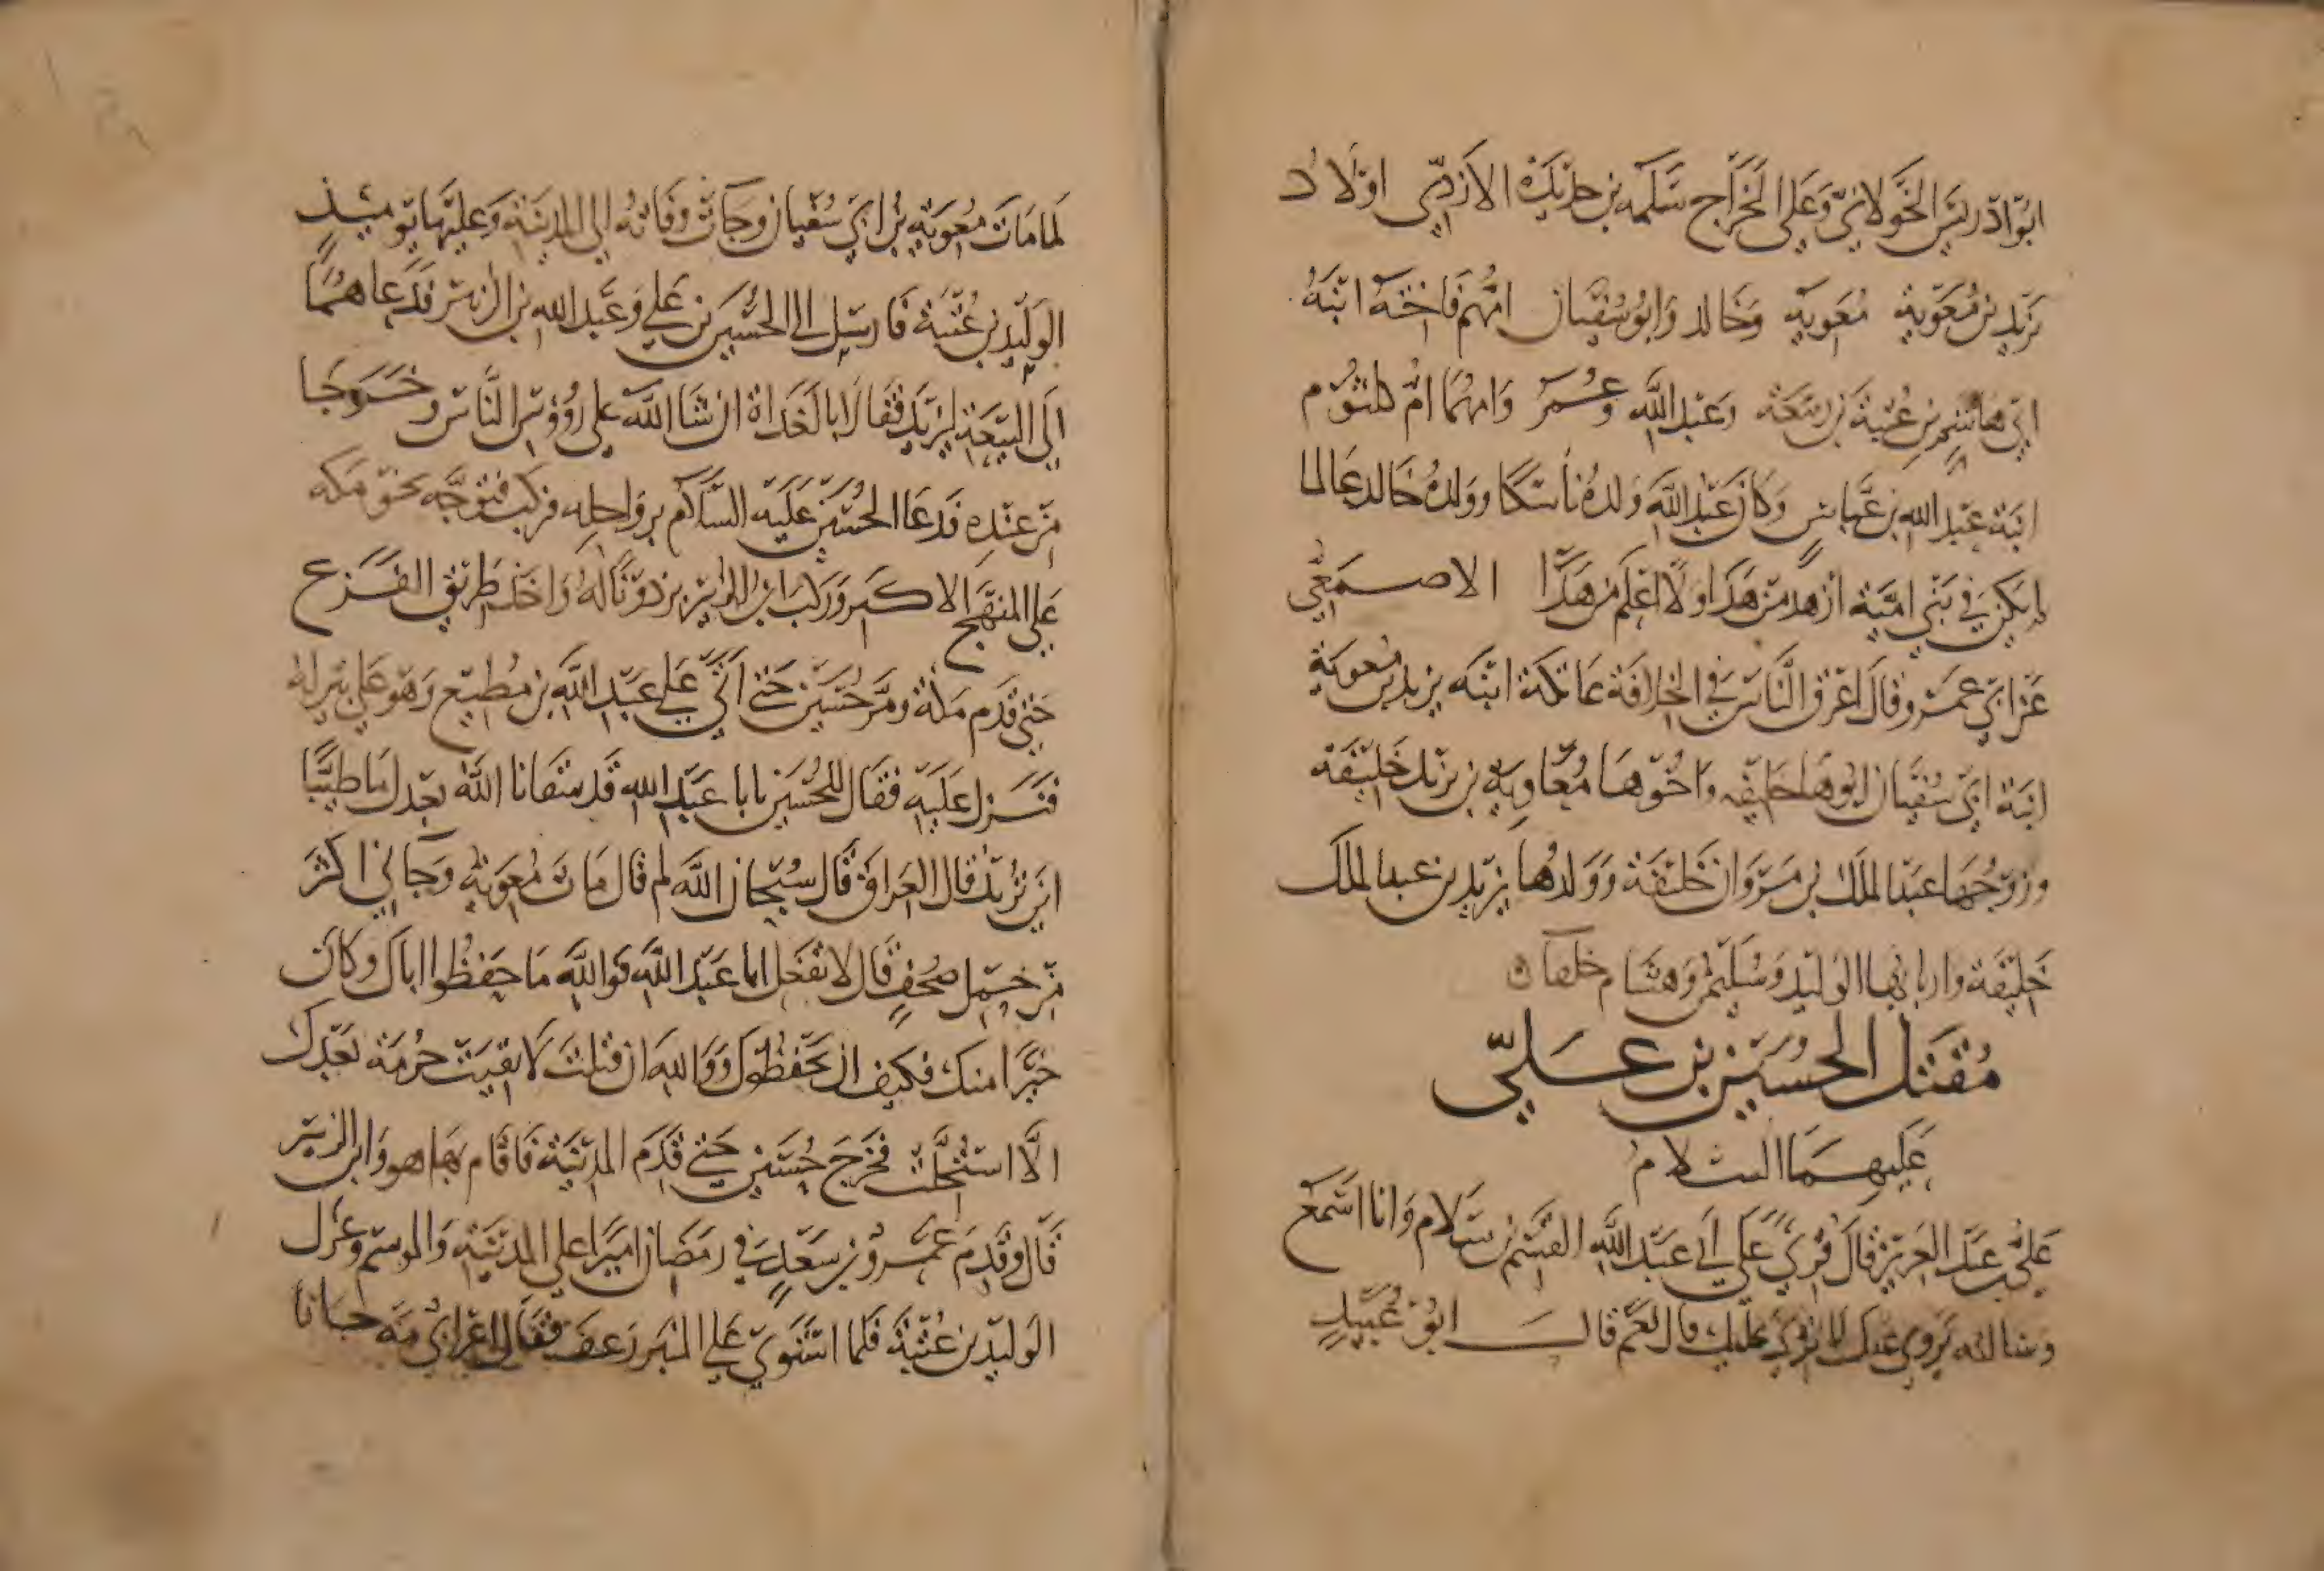 ابو ادريس الخولاني وعلى الخراج سلمه بن حديدة الازدي اولاد
يزيد بن معوية معوية وخالد وابو سفيان امهم فاخته ابنة
ابي هاشم بن عتبة بن ربيعة وعبد الله وعمر وامهما ام كلثوم
ابنة عبد الله بن عباس وكان عبد الله ولده ناسكا وولده خالد عالما
لم يكن في بني امية ازهد من هذا ولا اعلم من هذا الاصمعي
عن ابي عمرو قال اعرق الناس في الخلافة عاتكة ابنه يزيد بن معوية
ابنة ابي سفيان ابوها خليفه واخوها معاوية بن يزيد خليفة
وزوجها عبد الملك بن مروان خليفة وولدها يزيد بن عبد الملك
خليفة واربابها الوليد وسليمن وهشام خلفا
مقتل الحسين بن علي
عليهما السلام
علي بن عبد العزيز قال قري علي ابي عبد الله القسم بن سلام وانا اسمع
وسالته نروي عنك كما قري عليك قال نعم قال ابو عبيد
لما مات معوية بن ابي سفيان وجات وفاته الي المدينة وعليها يوميذ
الوليد بن عتبة فارسل الى الحسين بن علي وعبد الله بن الزبير فدعاهما
الي البيعة ليزيد فقالا بالغداة ان شا الله علي رووس الناس وخرجا
من عنده فدعا الحسين عليه السلام برواحله فركب فتوجه نحو مكه
علي المنهج الاكبر وركب ابن الزبير برذونا له واخذ طريق الفرع
حتي قدم مكة ومر حسين حتي اتي علي عبد الله بن مطيع وهو علي بئر له
فنزل عليه فقال للحسين يابا عبد الله قد سقانا الله بعدك ما طيبا
اين تريد قال العراق قال سبحان الله لم قال مات معوية وجاني اكثر
من حمل صحف قال لا تفعل ابا عبد الله فوالله ما حفظوا اباك وكان
خيرا منك فكيف ان يحفظوك ووالله ان قتلت لا بقيت حرمة بعدك
الا استحلت فخرج حسين حتي قدم المدينة فاقام بها هو وابن الزبير
قال وقدم عمرو بن سعيد في رمضان اميرا علي المدينة والموسم وعزل
الوليد بن عتبة فلما استوي علي المنبر رعف فقال اعرابي مه جانا